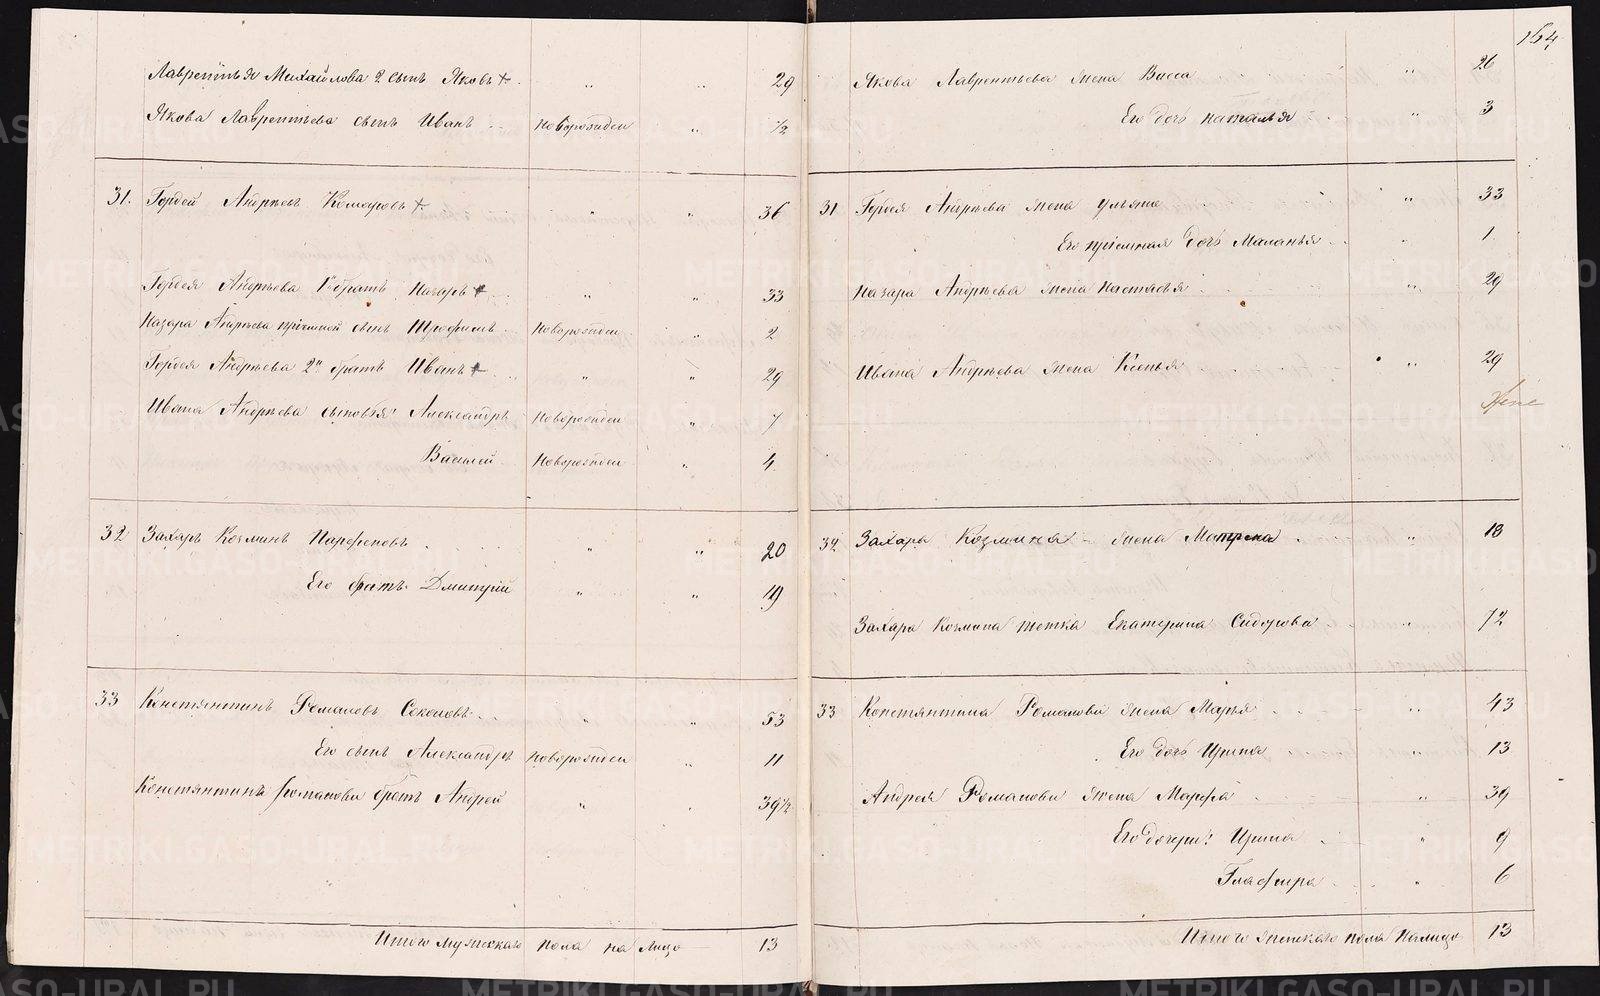 Лаврентья Михайлова 2 сынъ Яковъ + " " 29
Якова Лаврентьева сынъ Иванъ новорожден " 1/2
31. Гордей Андреевъ Комаровъ + " " 36
Гордея Андреева 1й братъ Назаръ + " " 33
Назара Андреева приемной сынъ Трофимъ Новорожден " 2
Гордея Андреева 2й братъ Иванъ + " " 29
Ивана Андреева сыновья Александръ Новорожден " 7
Василей Новорожден " 4
32 Захаръ Козминъ Парфеновъ " " 20
Его братъ Дмитрий " " 19
33 Констянтинъ Романовъ Соколовъ " " 53
Его сынъ Александръ новорожден " 11
Констянтина Романова братъ Андрей " " 39 1/2
Итого мужескаго пола на лицо 13
164
Якова Лаврентьева жена Васса " 26
Его дочь наталья " 3
31 Гордея Андреева жена ульяна " 33
Его приемная дочь Маланья " 1
Назара Андреева жена Настасья " 29
Ивана Андреева жена Ксенья " 29
32 Захара Козмина жена Матрена " 18
Захара Козмина тетка Екатерина Сидорова " 72
33 Констянтина Романова жена Марья " 43
Его дочь Ирина " 13
Андрея Романова жена Марфа " 39
Его дочери: Ирина " 9
Глафира " 6
Итого женскаго пола налицо 13
METRIKI.GASO-URAL.RU